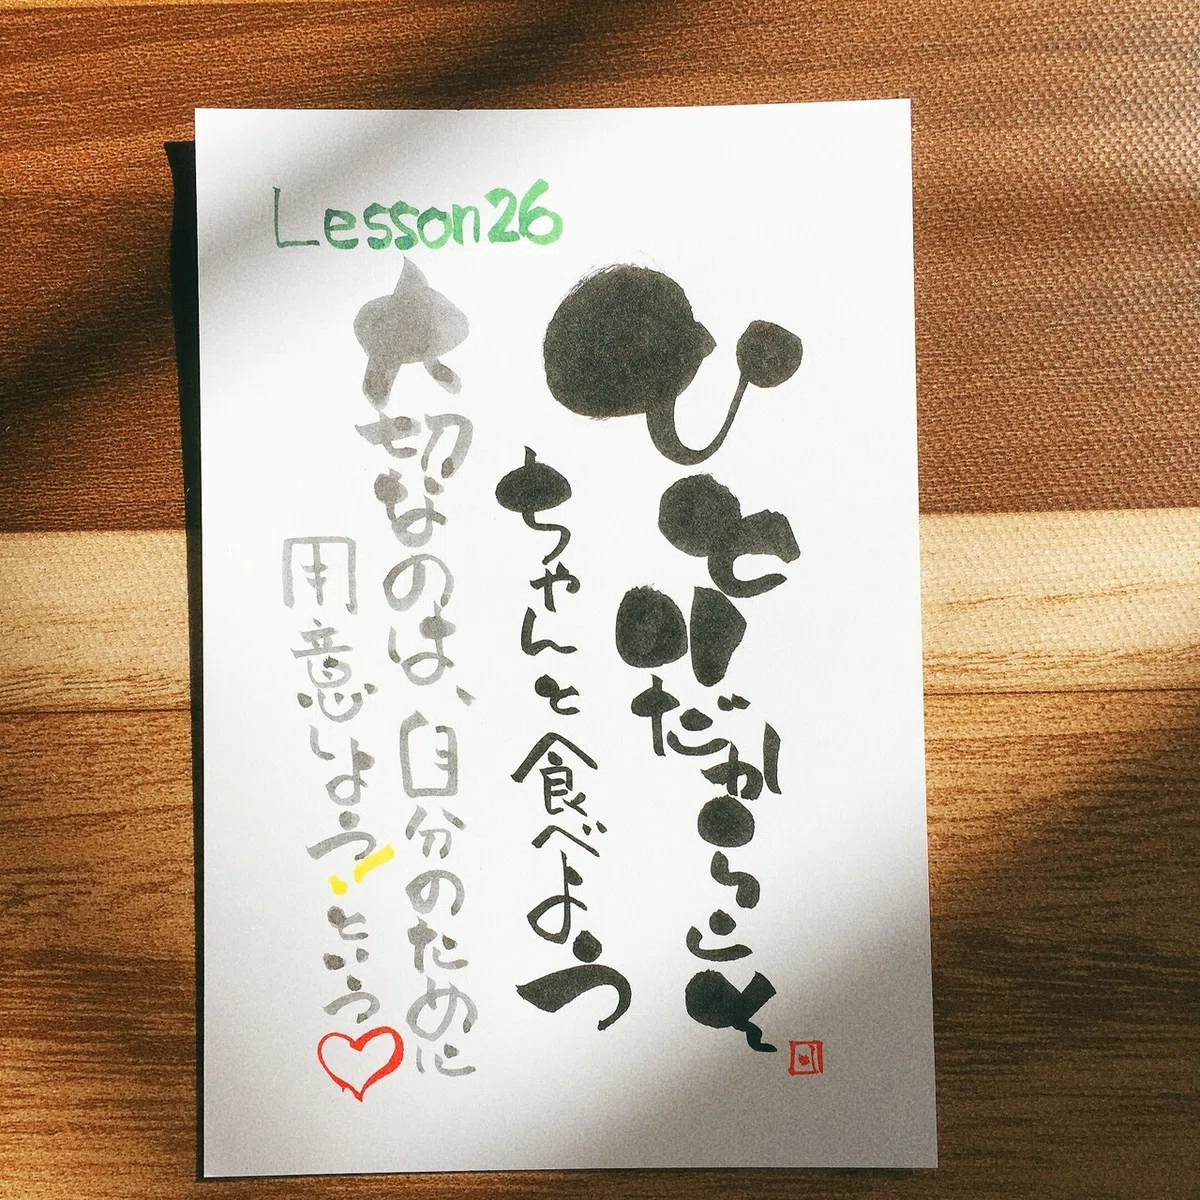 Lesson26
ひとりだからこそ
ちゃんと食べよう
大切なのは、自分のために
用意しよう!という